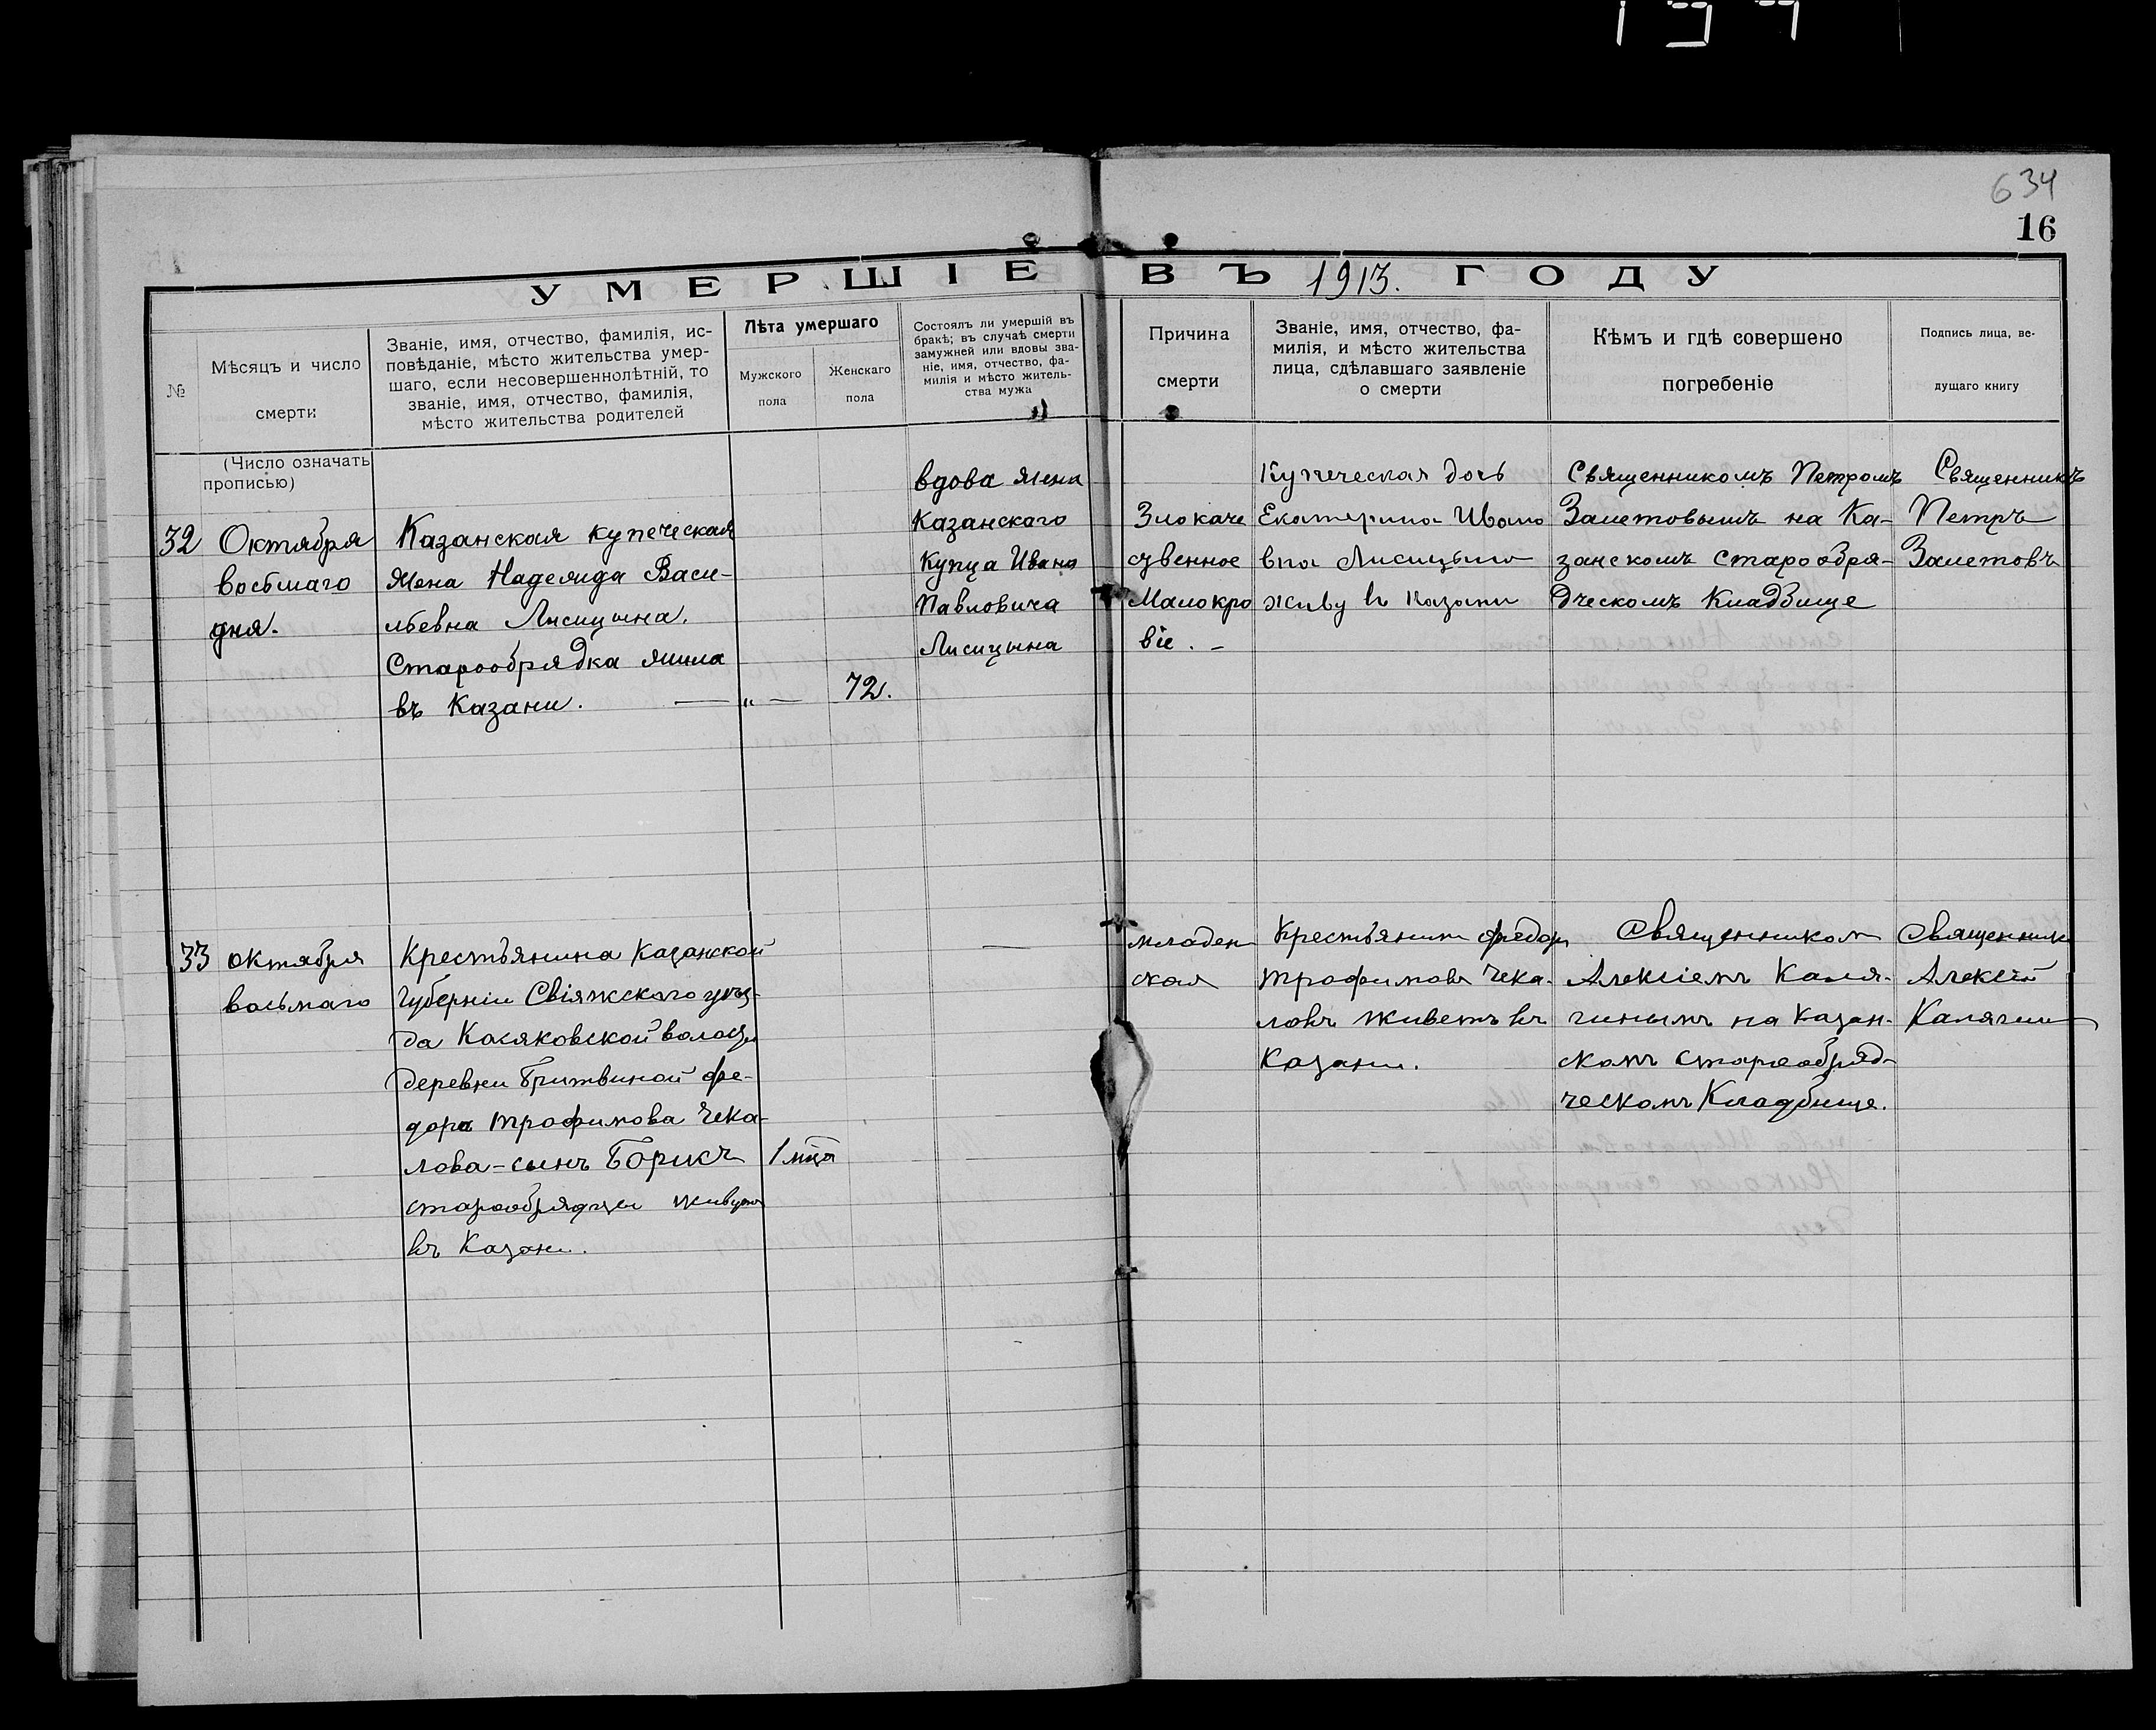 634
16
УМЕРШІЕ ВЪ 1913. ГОДУ
№
Мѣсяцъ и число
смерти
Званіе, имя, отчество, фамилія, ис-
повѣданіе, мѣсто жительства умер-
шаго, если несовершеннолѣтній, то
званіе, имя, отчество, фамилія,
мѣсто жительства родителей
Лѣта умершаго
Мужского
пола
Женскаго
пола
Состоялъ ли умершій въ
бракѣ; въ случаѣ смерти
замужней или вдовы зва-
ніе, имя, отчество, фа-
милія и мѣсто житель-
ства мужа
Причина
смерти
Званіе, имя, отчество, фа-
милія, и мѣсто жительства
лица, сдѣлавшаго заявленіе
о смерти
Кѣмъ и гдѣ совершено
погребеніе
Подпись лица, ве-
дущаго книгу
(Число означать
прописью)
32
Октября
восьмаго
дня.
Казанская купеческая
жена Надежда Васи-
льевна Лисицына.
Старообрядка жила
въ Казани. — „ —
72.
вдова жена
Казанскаго
Купца Ивана
Павловича
Лисицына
Злокаче
ственное
Малокро
віе. –
Купеческая дочь
Екатерина Ивано
вна Лисицына
живу въ Казани
Священникомъ Петромъ
Залетовымъ на Ка-
занскомъ Старообря-
дческомъ Кладбище
Священникъ
Петръ
Залетовъ
33
октября
восьмаго
Крестьянина Казанской
Губерніи Свіяжскаго уѣз-
да Косяковской волости
деревни Бритвиной Фе-
дора Трофимова Чека-
лова-сынъ Борисъ
старообрядцы живутъ
въ Казани.
1 мца
—
младен
ская
Крестьянин Федоръ
Трофимовъ Чека-
ловъ живетъ въ
Казани.
Священником
Алексіемъ Каля-
гинымъ на Казан-
скомъ старообряд-
ческомъ Кладбище.
Священник
Алексѣй
Калягин